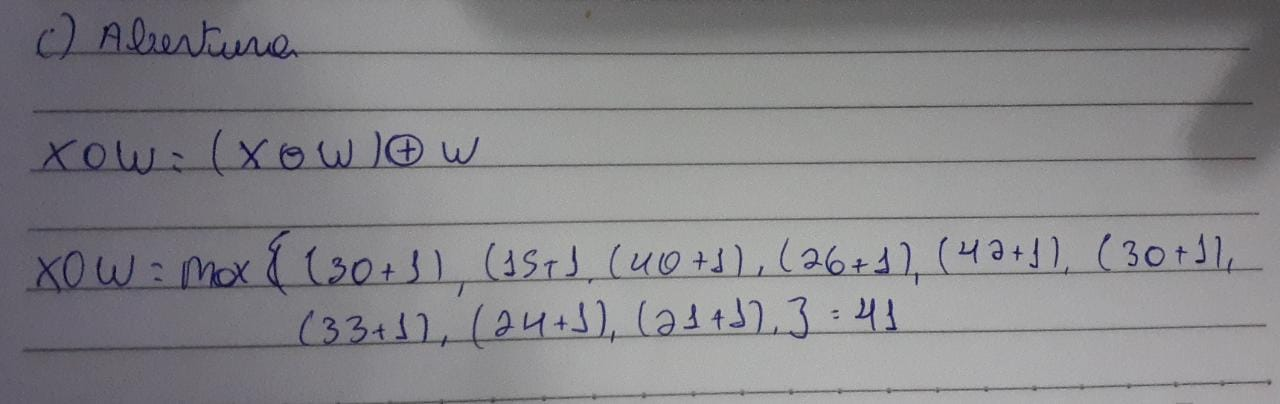 c) Abertura
XOW = (X⊖W)⊕W
XOW = max { (30+1), (15+1, (40+1), (26+1), (42+1), (30+1),
(33+1), (24+1), (21+1), } = 41